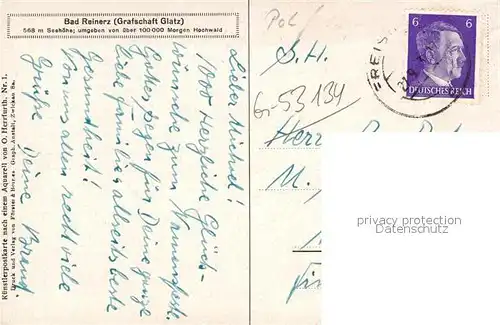 Bad Reinerz (Grafschaft Glatz)
568 m Seehöhe; umgeben von über 100 000 Morgen Hochwald
Lieber Michel!
1000 herzliche Glück-
wünsche zum Namensfeste.
Gottes Segen für Deine ganze
liebe Familie, allerbeste
Gesundheit!
Von uns allen recht viele
Grüße Deine
Künstlerpostkarte nach einem Aquarell von O. Herrfurth. Nr. 1.
Druck und Verlag von Förster & Borries, Graph. Anstalt, Zwickau Sa.
POL
S.H.
G-53134
Herr
M.
6 6
DEUTSCHES REICH
privacy protection
Datenschutz